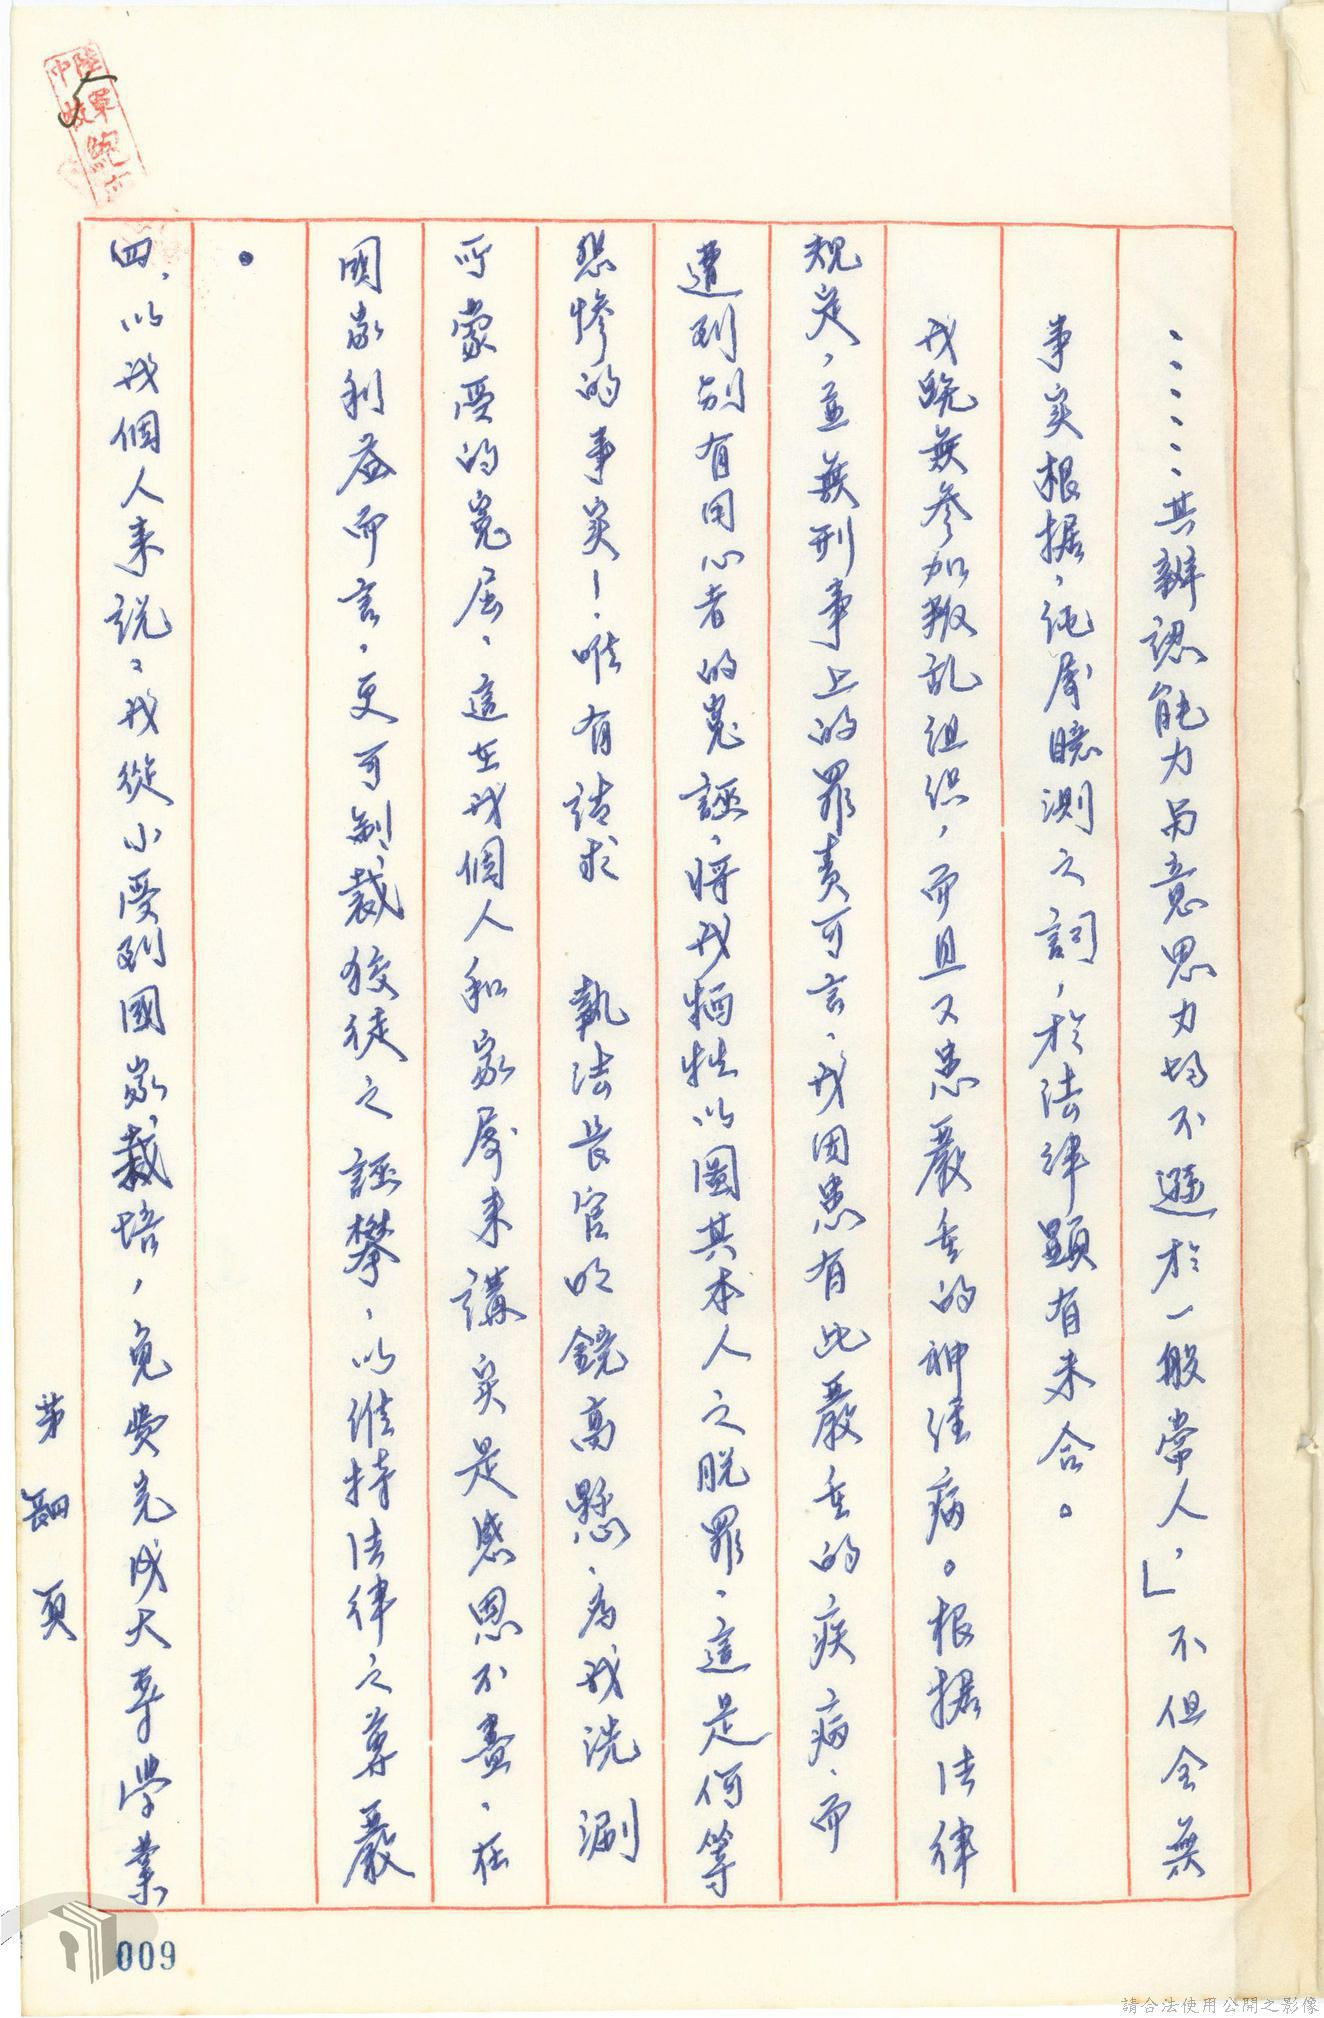 ……其辦認能力與意思力均不遜於一般常人，」不但全無
事实根據，純屬臆測之詞，於法律顯有未合。
我既無參加叛乱組织，而且又患嚴重的神経病。根據法律
規定，並無刑事上的罪責可言，我因患有此嚴重的疾病，而
遭到别有用心者的冤誣，將我牺牲以圖其本人之脱罪，這是何等
悲慘的事実！唯有請求　執法長官明鏡高懸，為我洗涮
所蒙受的冤屈，這在我個人和家屬来講実是感恩不盡，在
國家利益而言，更可制裁狡徒之誣攀，以維持法律之尊嚴
。
四，以我個人来説，我從小受到國家栽培，免費完成大專學業
第四頁
009
請合法使用公開之影像